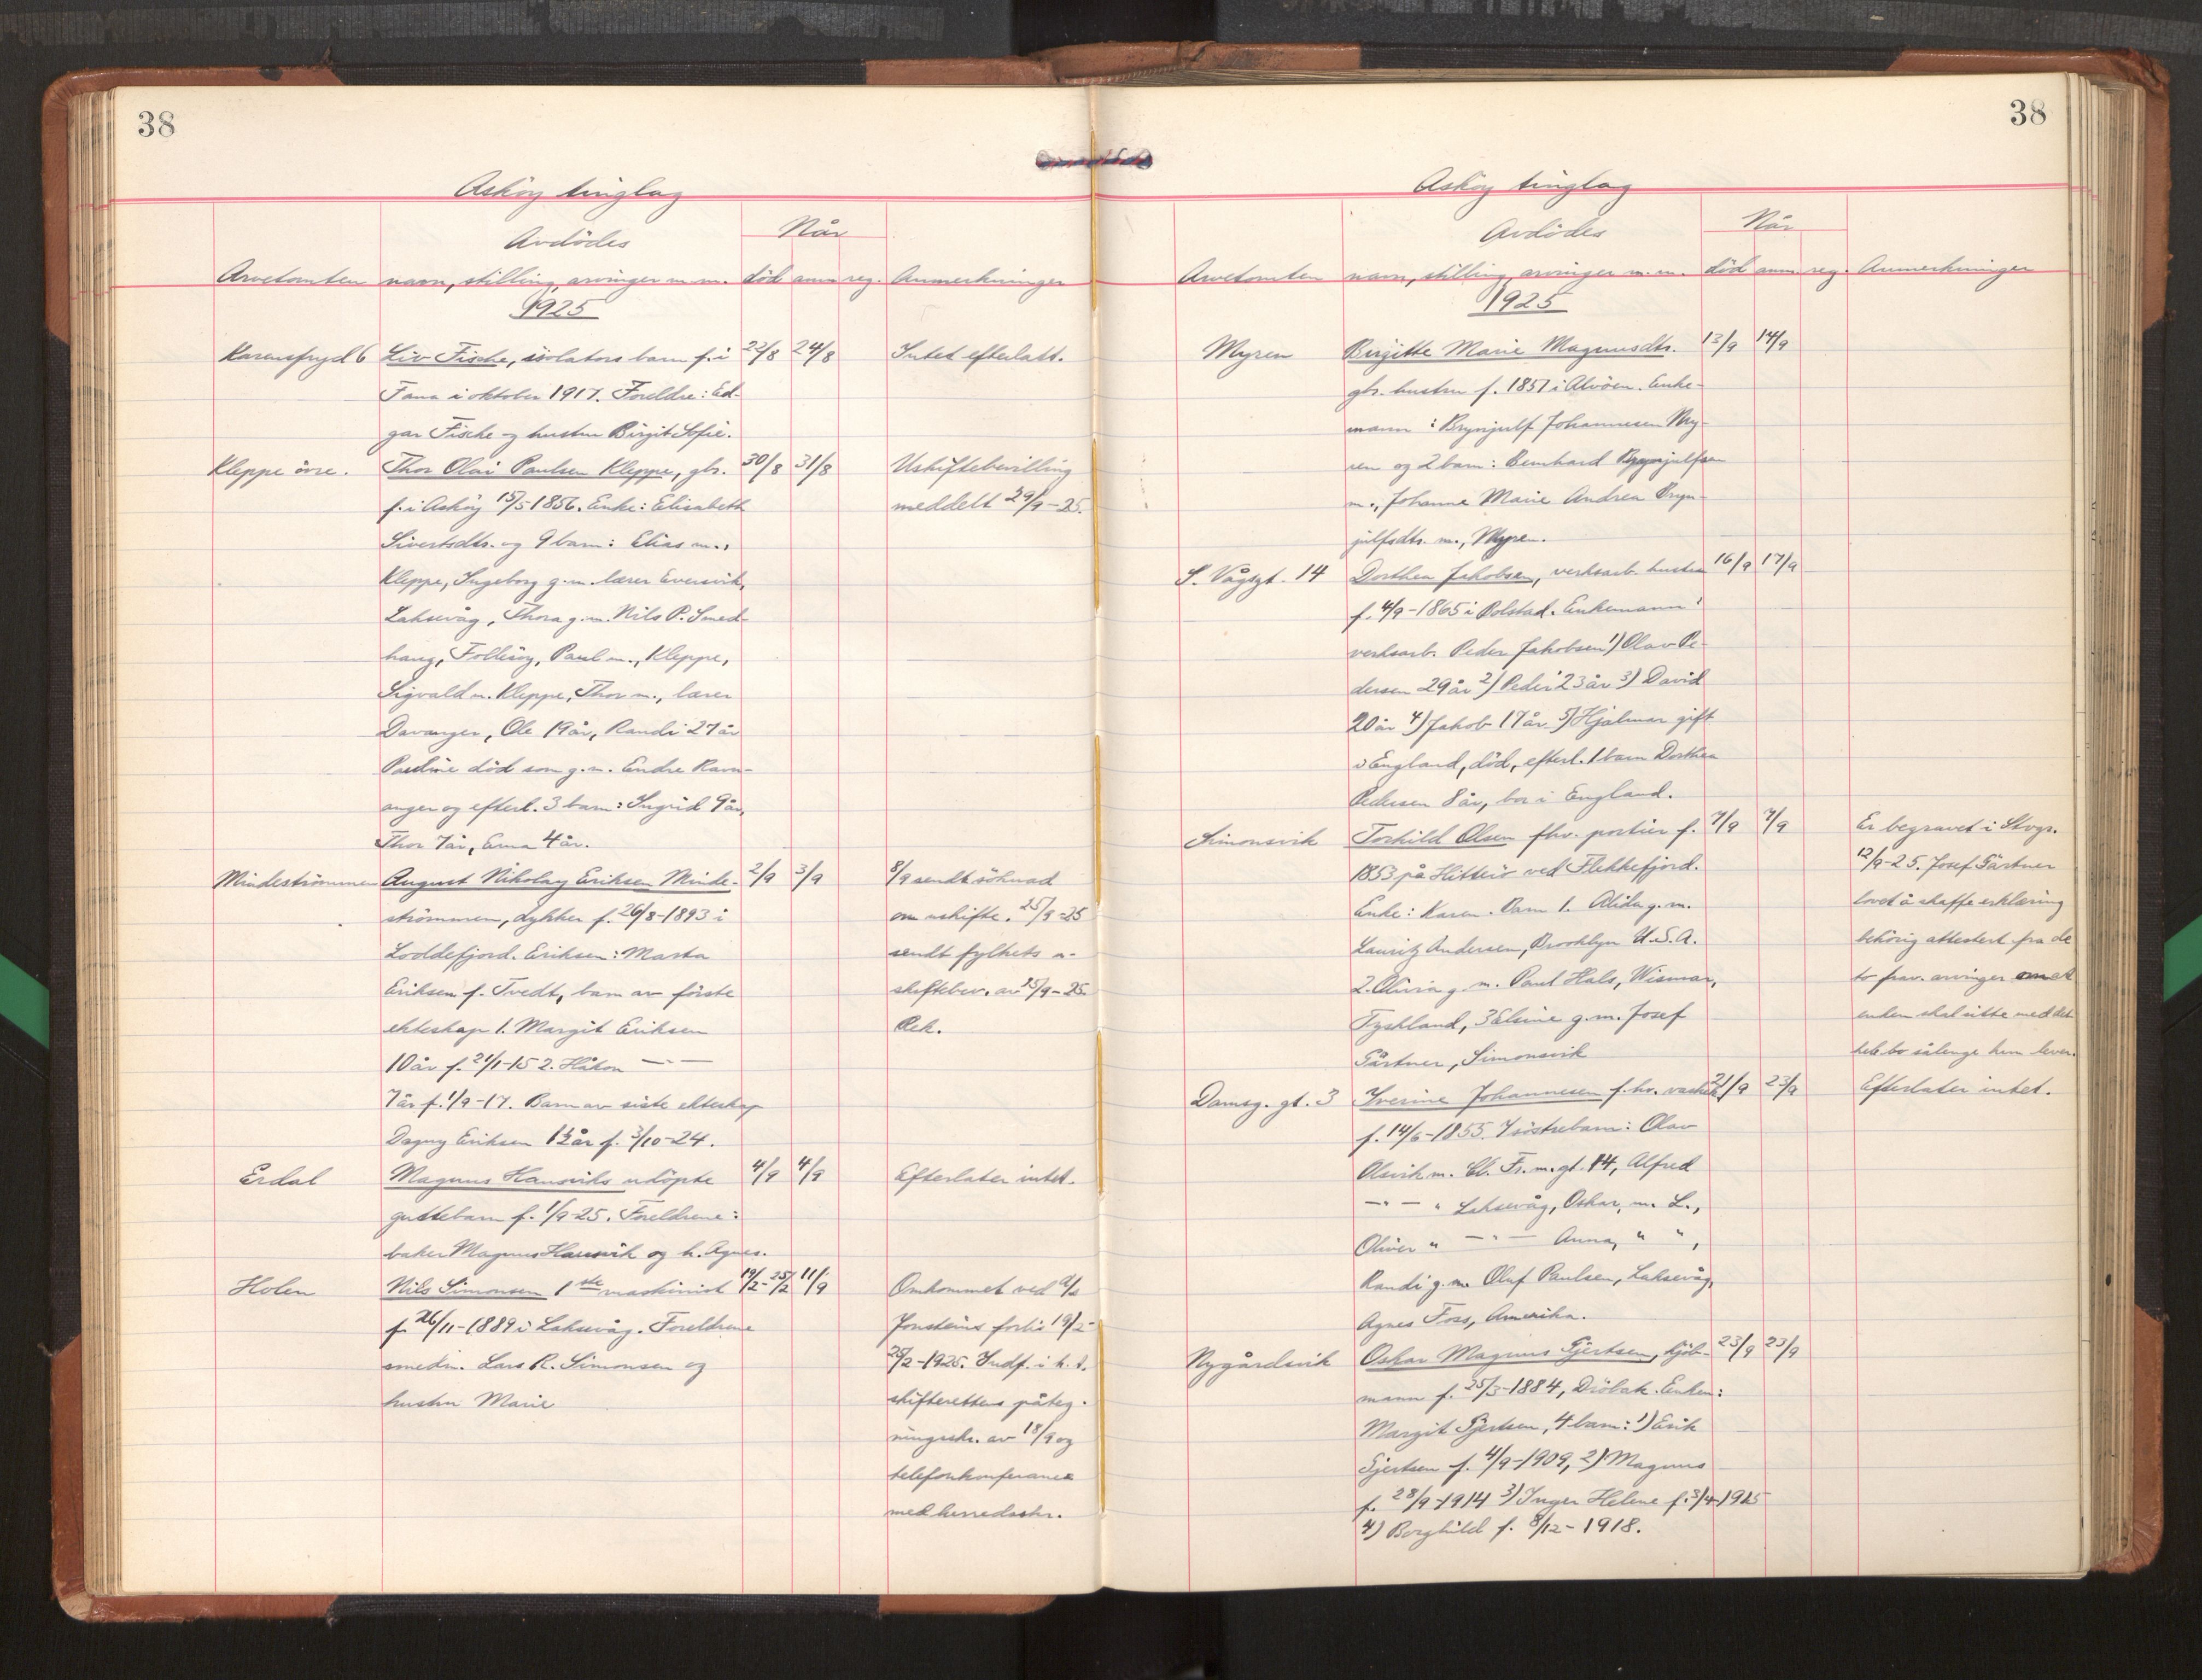 38
Askøy tinglag
Når
Avdödes
Arvetomten navn, stilling, arvinger m.m. död anm. reg. Anmerkninger
1925
Karensfryd 6 Liv Fische, isolatörs barn f. i 22/8 24/8 Intet efterlatt.
Fana i oktober 1917. Foreldre: Ed-
gar Fische og hustru Birgit Sofie.
Kleppe övre. Thor Olai Paulsen Kleppe, gbr. 30/8 31/8 Uskiftebevilling
f. i Asköy 15/5 1856. Enke: Elisabeth meddelt 29/9-25.
Sivertsdtr. og 9 barn: Elias m.,
Kleppe, Ingeborg g.m. lærer Evensvik,
Laksevåg, Thora g.m. Nils P. Smed-
haug, Follesöy, Paul m., Kleppe,
Sigvald m. Kleppe, Thor m., lærer
Davanger, Ole 19 år, Randi 27 år
Pauline död som g.m. Endre Ravn-
anger og efterl. 3 barn: Ingrid 9 år,
Thor 7 år, Erna 4 år.
Mindeströmmen August Nikolay Eriksen Minde- 2/9 3/9 8/9 sendt söknad
strömmen, dykker f. 26/8-1893 i om uskifte. 25/9-25
Loddefjord. Eriksen: Marta sendt fylkets u-
Eriksen f. Tvedt, barn av förste skiftebev. av 25/9-25.
ekteskap 1. Margit Eriksen Rek.
10 år f. 21/1-15 2. Håkon — " —
7 år f. 1/9-17. Barn av siste ekteskap
Dagny Eriksen 1½ år f. 3/10-24.
Erdal Magnus Hansviks udöpte 4/9 4/9 Efterlater intet.
guttebarn f. 1/9-25. Foreldrene:
baker Magnus Hausvik og h. Agnes.
Holen Nils Simonsen 1ste maskinist 19/2-25/2 11/9 Omkommet ved d/s
f. 26/11-1889 i Laksevåg. Foreldrene Jonsteins forlis 19/2-
smedm. Lars R. Simonsen og 25/2-1925. Indf. i h.t.
hustru Marie skifterettens påteg-
ningsskr. av 18/9 og
telefonkonferance
med herredsskr.
38
Askøy tinglag
Når
Avdödes
Arvetomten navn, stilling, arvinger m.m. död anm. reg. Anmerkninger
1925
Myren Birgitte Marie Magnusdtr. 13/9 14/9
gbr. hustru f. 1857 i Alvöen. Enke-
mann: Brynjulf Johannesen My-
ren og 2 barn: Bernhard Brynjulfsen
m., Johanne Marie Andrea Bryn-
julfsdtr. m., Myren.
S. Vågsgt. 14 Dorthea Jakobsen, verksarb. hustru 16/9 17/9
f. 4/9-1865 i Bolstad. Enkemann:
verksarb. Peder Jakobsen 1) Olav Pe-
dersen 29 år 2) Peder 23 år 3) David
20 år 4) Jakob 17 år 5) Hjalmar gift
i England, död, efterl. 1 barn Dorthea
Pedersen 8 år, bor i England.
Simonsvik Torkild Olsen fhv. portier f. 7/9 7/9 Er begravet i Stvgr.
1853 på Hitterö ved Flekkefjord. 12/9-25. Josef Gärtner
Enke: Karen. Barn 1. Alida g.m. lovet å skaffe erklæring
Lauritz Andersen, Brooklyn U.S.A. behörig attestert fra de
2. Olivia g.m. Paul Hals, Wismar, to frav. arvinger om at
Tyskland, 3 Elsine g.m. Josef enken skal sitte med det
Gärtner, Simonsvik hele bo sålenge hun lever.
Damsg. gt. 3 Iverine Johannesen f.hv. 21/9 23/9 Efterlater intet.
f. 14/6-1855. 7 söstrebarn: Olav
Olsvik m. Cl. Fr. m. gt. 14, Alfred
— " — " Laksevåg, Oskar, m. L.,
Oliver " — " — Anna, " ",
Randi g.m. Oluf Paulsen, Laksevåg,
Agnes Foss, Amerika.
Nygårdsvik Oskar Magnus Gjertsen, kjöb- 23/9 23/9
mann f. 25/3-1884, Dröbak. Enken:
Margit Gjertsen, 4 barn: 1) Erik
Gjertsen f. 4/9-1909, 2) Magnus
f. 28/9-1914 3) Inger Helene f. 3/4-1915
4) Borghild f. 8/12-1918.